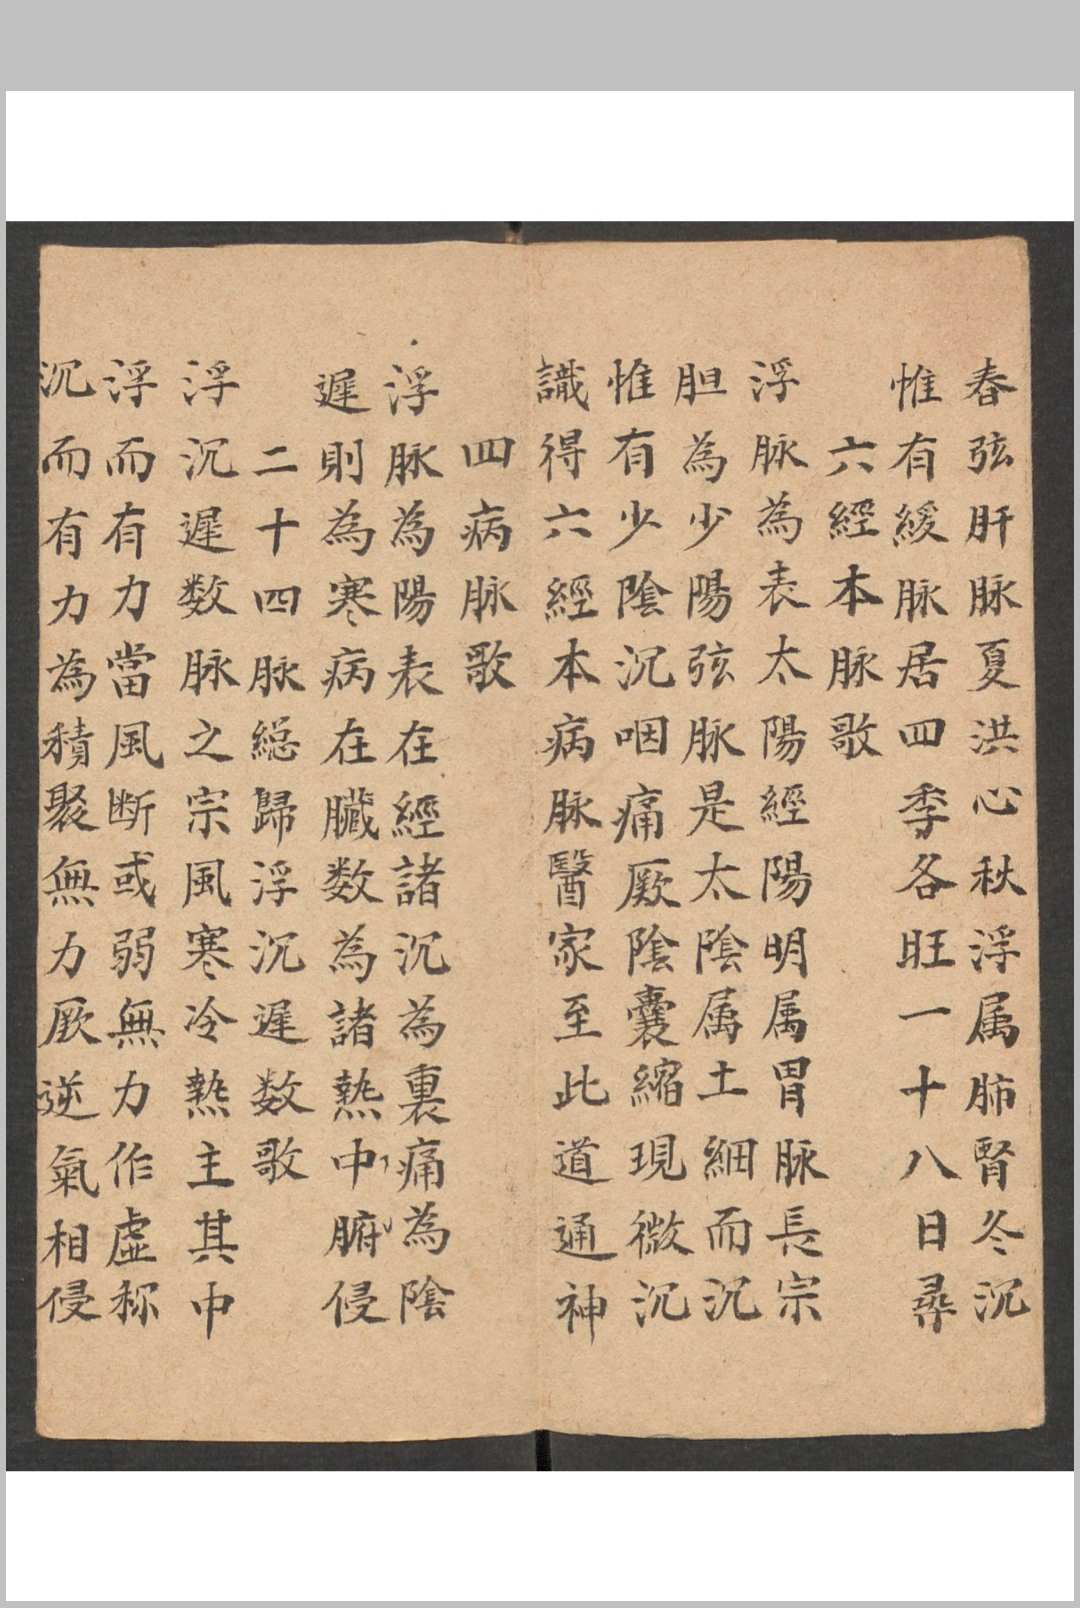 春弦肝脉夏洪心秋浮属肺腎冬沉
惟有緩脉居四季各旺一十八日尋
六經本脉歌
浮脉為表太陽經陽明属胃脉長宗
胆為少陽弦脉是太陰属土細而沉
惟有少陰沉咽痛厥陰囊縮現微沉
識得六經本病脉醫家至此道通神
四病脉歌
浮脉為陽表在經諸沉為裏痛為陰
遲則為寒病在臟数為諸熱中腑侵
二十四脉総歸浮沉遲数歌
浮沉遲数脉之宗風寒冷熱主其中
浮而有力當風断或弱無力作虚称
沉而有力為積聚無力厥逆氣相侵